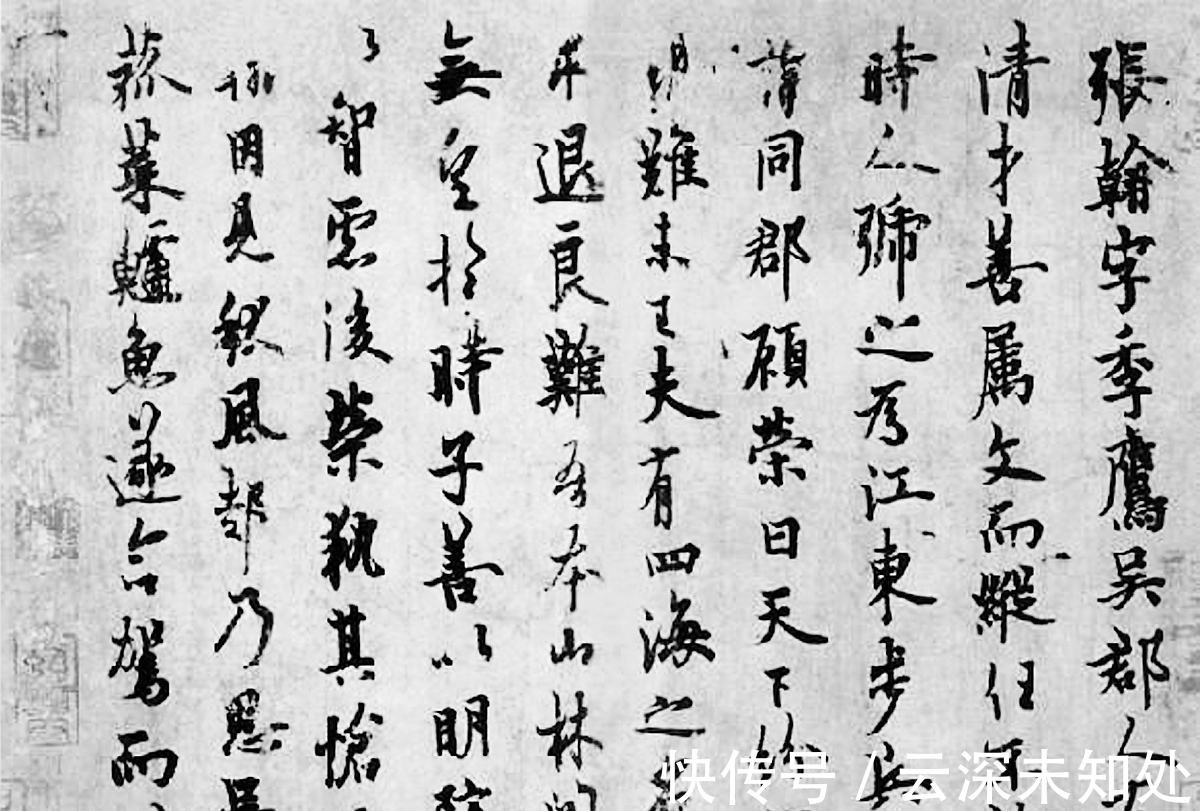 張翰字季鷹吳郡
清才善屬文而縱任不
時人號之為江東步兵
謂同郡顧榮曰天下紛
難未已夫有四海之名
求退良難吾本山林間
無望於時子善以明防
以智慮後榮執其愴
因見秋風起乃思吳
菰菜鱸魚遂命駕而
快传号 / 云深未知处